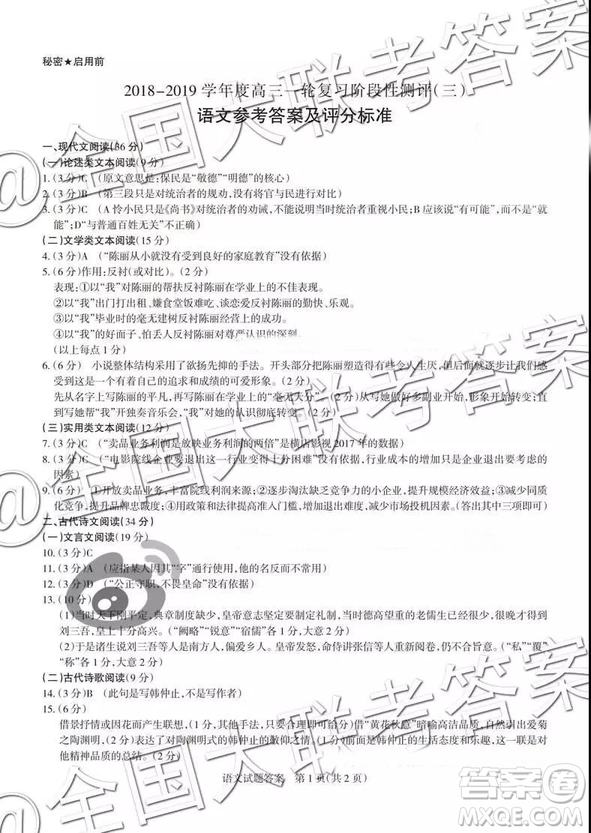 秘密★启用前
2018-2019学年度高三一轮复习阶段性测评(三)
语文参考答案及评分标准
一、现代文阅读(36分)
(一)论述类文本阅读(9分)
1.(3分)C (原文意思是:保民是“敬德”“明德”的核心)
2.(3分)B (第三段只是对统治者的规劝,没有官与民的影响)
3.(3分)C (A怜小民只是《尚书》对统治者的劝诫,不能说明当时统治者重视小民;B应该说“有可能”,而不是“已
成”;D“与普通百姓无关”不对)
(二)文学类文本阅读(15分)
4.(3分)A (“陈丽从小就没有受到良好的家庭教育”没有依据)
5.(6分)作用:反衬(或对比)。(2分)
表现:①以“我”对陈丽的帮助反衬陈丽在学业上的不佳状态。
②以“我”出门打出租、嫌食堂饭难吃、谈恋爱反衬陈丽的勤快、乐观。
③以“我”毕业时的毫无建树反衬陈丽经营上的成功。
④以“我”的好面子、怕丢人反衬陈丽对尊严认识的深刻。
(以上每点1分)
6.(6分) 小说整体结构采用了欲扬先抑的手法。开头部分把陈丽塑造得有些令人生厌,但后面的故事逐步让我们感
受到这是一个自尊自爱、有成绩的可爱形象。(2分)
先从名字上写陈丽的平凡,再写陈丽在学业上的“毫无天分”(2分)从写她做好多副业开始,整个形象开始变化,
到宾馆“我”开独奏音乐会,形象得到了升华。(2分)
(三)实用类文本阅读(12分)
7.(3分)C (“卖品业务利润是放映业务利润的两倍”是横店影视2017年的数据)
8.(3分)C (“电影院线企业的经营变得十分困难”没有依据,行业成本的过快增长只是影响企业利润的一个重要
因素)
9.(6分) ①开放卖品业务,丰富院线利润来源;②逐步淘汰缺乏竞争力的小企业,提升行业竞争能力;③打造龙头企
业,提升品牌忠诚度;④用政策和法律提高准入门槛,增大市场投机因素。(答出其中三项即可)
二、古代诗文阅读(34分)
(一)文言文阅读(19分)
10.(3分)C
11.(3分)A (应指某人因其“字”通行使用,他的名反而不常用)
12.(3分)D (“公正守职,不畏皇命”没有依据)
13.(10分)
(1)当时天下刚平定,典章制度缺少,皇帝意志坚定要制定礼乐制度,当时德高望重的老儒生已死去,因此得到了
刘三吾,皇上十分高兴。(“阙略”“锐意”“宿儒”各1分,大意2分)
(2)于是诸位儿子大多说刘三吾等徇私偏爱南方人。皇帝命侍讲张信等人重新阅卷,很久没有得到回复。(“私”“覆”
“称”各1分,大意2分)
(二)古代诗歌阅读(9分)
14.(3分)B (此句是写韩仲止,不是写自己)
15.(6分)
借景抒情或因花而产生联想,只要答出其中一点即可。(2分)借“黄花秋意”暗喻高洁品质,引出归隐东篱、爱菊
之陶渊明,(2分)表达了对与陶渊明式的韩仲止的生活状态和乐趣,无论世事如何纷扰都能固守乐趣,这是对
他精神品质的大力赞扬。(2分)
语文试题答案 第1页(共2页)
@全国大联考答案
答案圈